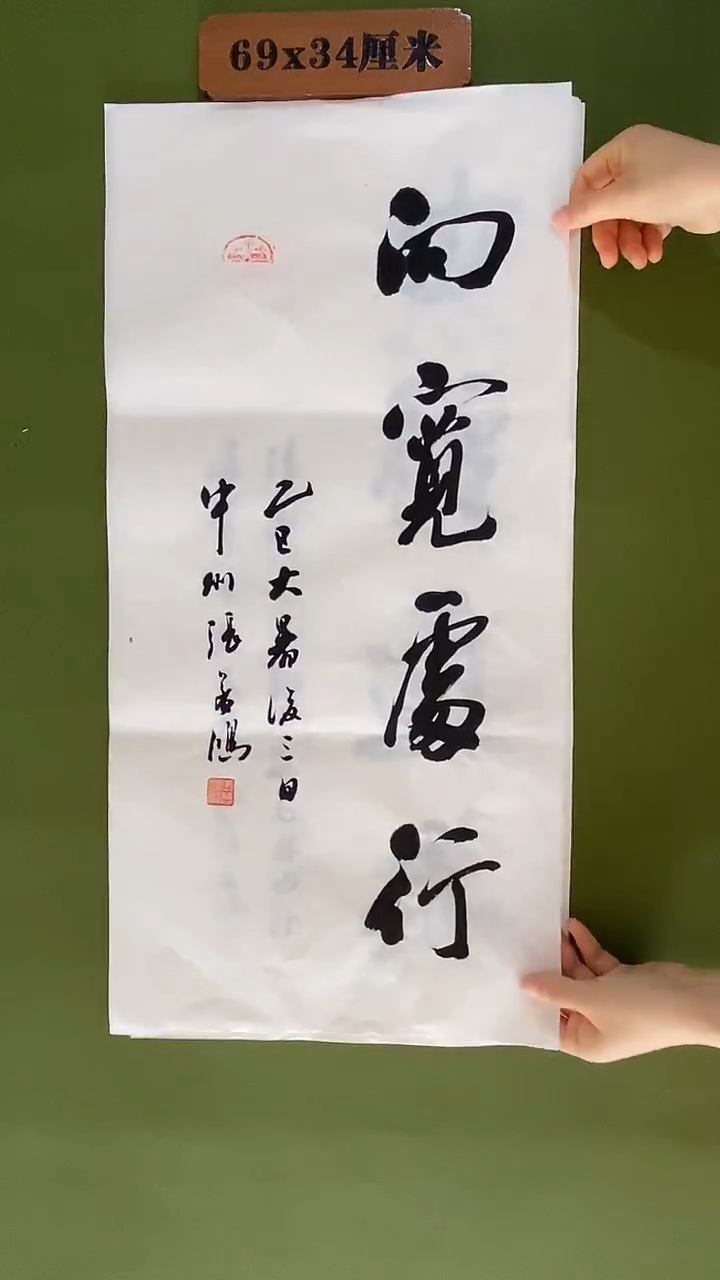 69x34厘米
向寬處行
乙巳大暑後三日
中州張孟鴻